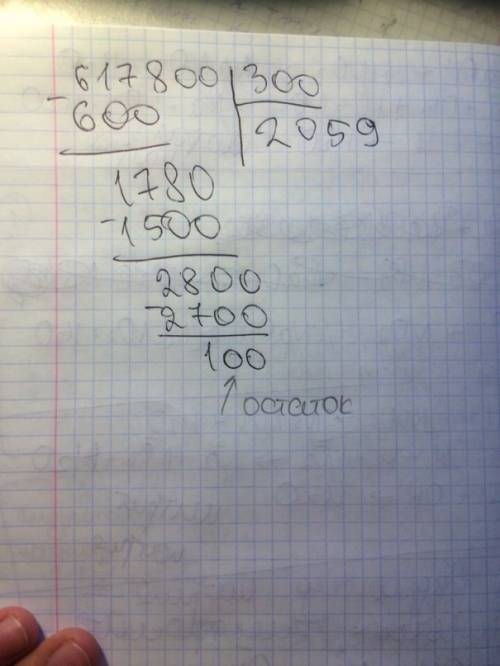 617800 300
- 600 2059
1780
-1500
2800
-2700
100
остаток